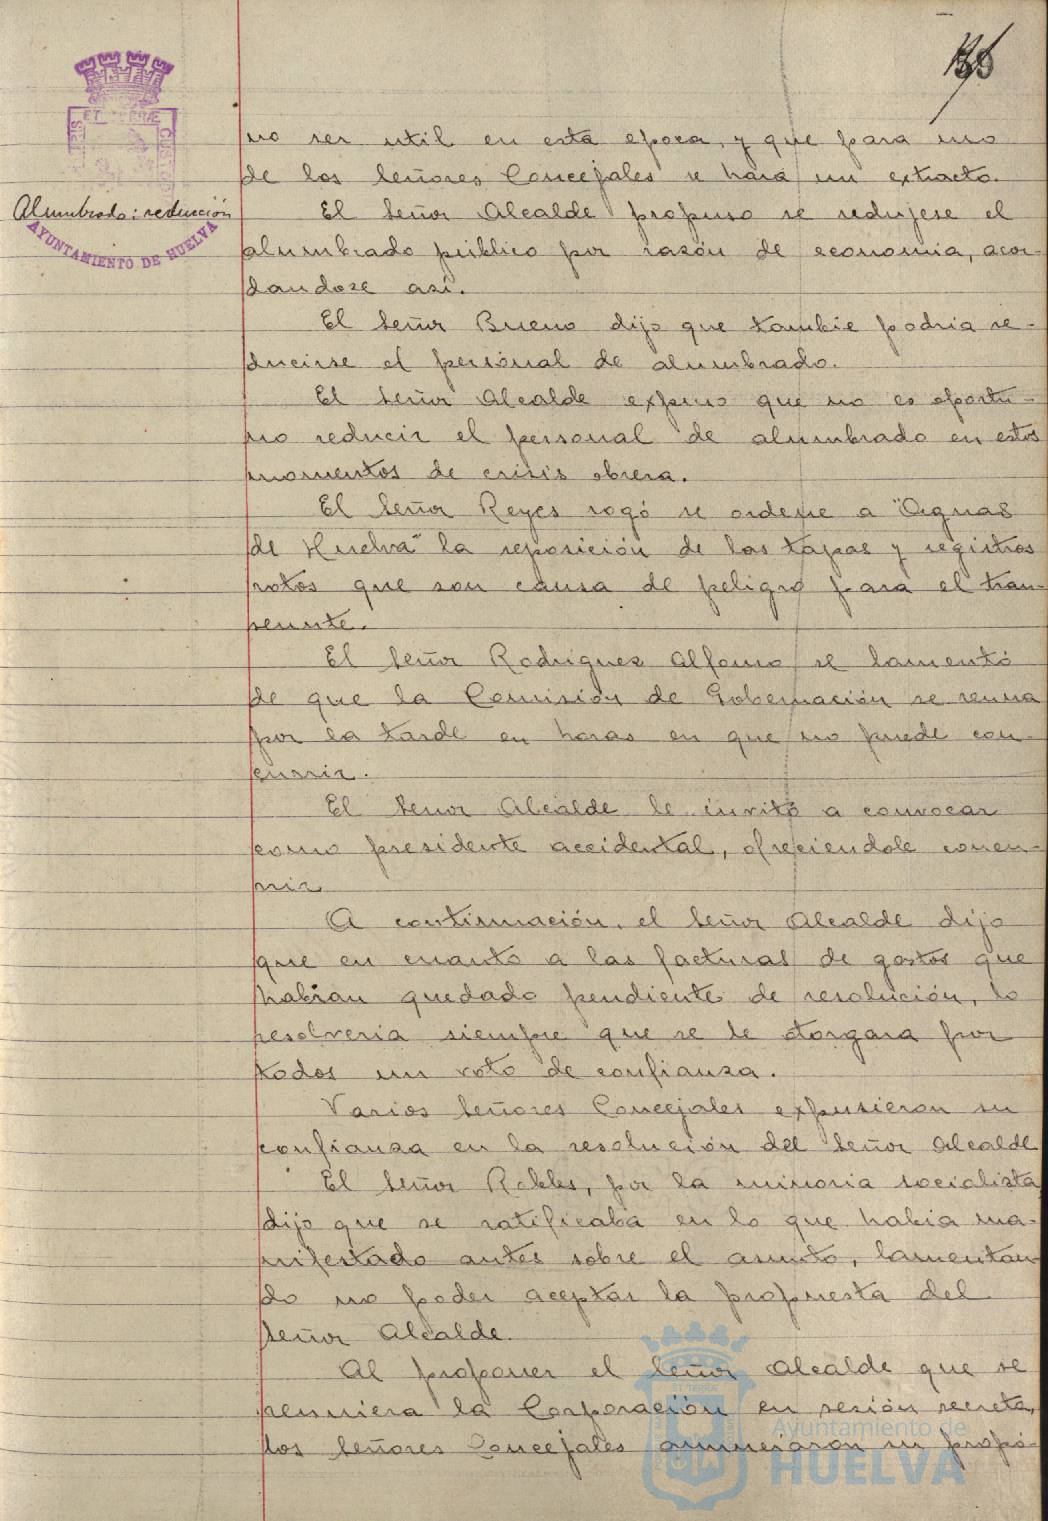 no ser util en esta epoca, y que para uso
de los Señores Concejales se hará un extracto.
Alumbrado: reducción
El Señor Alcalde propuso se redujese el
alumbrado público por razón de economia, acor-
dandose así.
El Señor Bueno dijo que tambie podria re-
ducirse el personal de alumbrado.
El Señor Alcalde expuso que no es oportu-
no reducir el personal de alumbrado en estos
momentos de crisis obrera.
El Señor Reyes rogó se ordene a "Aguas
de Huelva" la reposición de las tapas y registros
rotos que son causa de peligro para el tran-
seunte.
El Señor Rodriguez Alfonso se lamentó
de que la Comisión de Gobernación se reuna
por la tarde en horas en que no puede con-
currir.
El Señor Alcalde le invitó a convocar
como presidente accidental, ofreciendole concu-
rrir
A continuación, el Señor Alcalde dijo
que en cuanto a las facturas de gastos que
habian quedado pendiente de resolución, lo
resolveria siempre que se le otorgara por
todos un voto de confianza.
Varios Señores Concejales expusieron su
confianza en la resolución del Señor Alcalde
El Señor Robles, por la minoria socialista,
dijo que se ratificaba en lo que habia ma-
nifestado antes sobre el asunto, lamentan-
do no poder aceptar la propuesta del
Señor Alcalde.
Al proponer el Señor Alcalde que se
reuniera la Corporación en sesión secreta,
los Señores Concejales anunciaron su propó-
AYUNTAMIENTO DE HUELVA
Ayuntamiento de
HUELVA